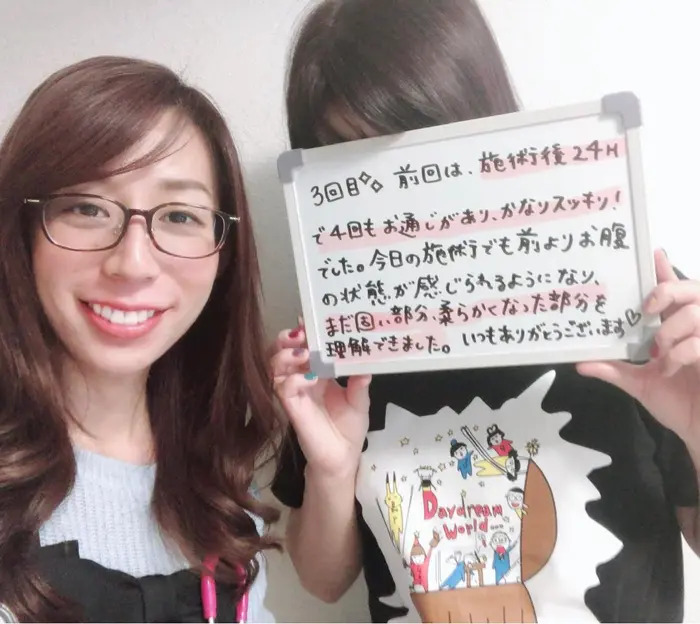 3回目✧✧ 前回は、施術後24H
で4回もお通じがあり、かなりスッキリ!
でした。今日の施術でも前よりお腹
の状態が感じられるようになり、
まだ固い部分、柔らかくなった部分を
理解できました。いつもありがとうございます♡
Daydream
World...